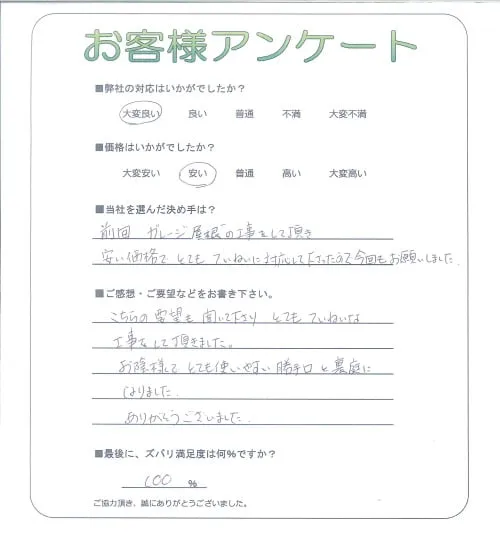 お客様アンケート
■弊社の対応はいかがでしたか?
大変良い 良い 普通 不満 大変不満
■価格はいかがでしたか?
大変安い 安い 普通 高い 大変高い
■当社を選んだ決め手は?
前回 ガレージ屋根の工事をして頂き
安い価格で とても ていねいに対応して下さったので今回もお願いしました。
■ご感想・ご要望などをお書き下さい。
こちらの要望も聞いて下さり とてもていねいな
工事をして頂きました。
お陰様で とても使いやすい勝手口と裏庭に
なりました。
ありがとうございました。
■最後に、ズバリ満足度は何%ですか?
100 %
ご協力頂き、誠にありがとうございました。